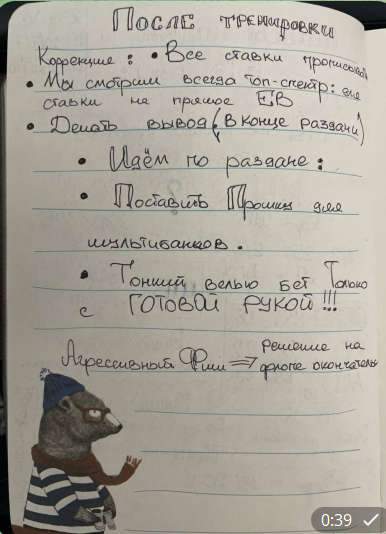 После тренировки
Коррекция: • Все ставки прописывать
• Мы смотрим всегда топ-спектр: для
ставки на прямое EB
• Делать вывод (в конце раздачи)
• Идём по раздаче:
• Поставить Прошки для
мультибанков.
• Тонкий велью бет Только
с ГОТОВОЙ РУКОЙ!!!
Агрессивный Фиш ⇒ Решение на
флопе окончательн
0:39